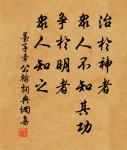 治於神者
眾人不知其功
爭於明者
眾人知之
墨子章公輸